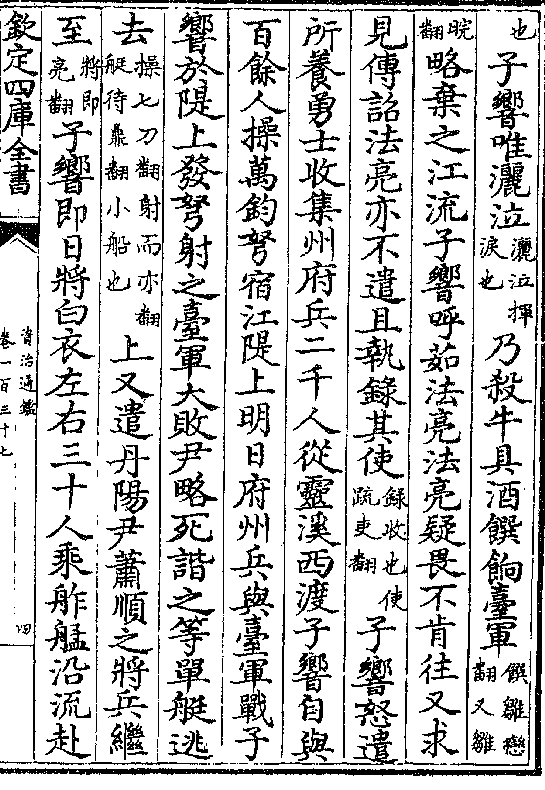 也子響唯灑泣灑泣揮淚也乃殺牛具酒饌餉臺軍饌雛戀翻又雛
睆翻略棄之江流子響呼茹法亮法亮疑畏不肯往又求
見傳詔法亮亦不遣且執錄其使錄收也使疏吏翻子響怒遣
所養勇士收集州府兵二千人從靈溪西渡子響自與
百餘人操萬鈞弩宿江隄上明日府州兵與臺軍戰子
響於隄上發弩射之臺軍大敗尹略死諧之等單艇逃
去操七刀翻射而亦翻艇待鼎翻小船也上又遣丹陽尹蕭順之將兵繼
至將即亮翻子響即日將白衣左右三十人乘舴艋沿流赴
欽定四庫全書
資治通鑑
卷一百三十七
四